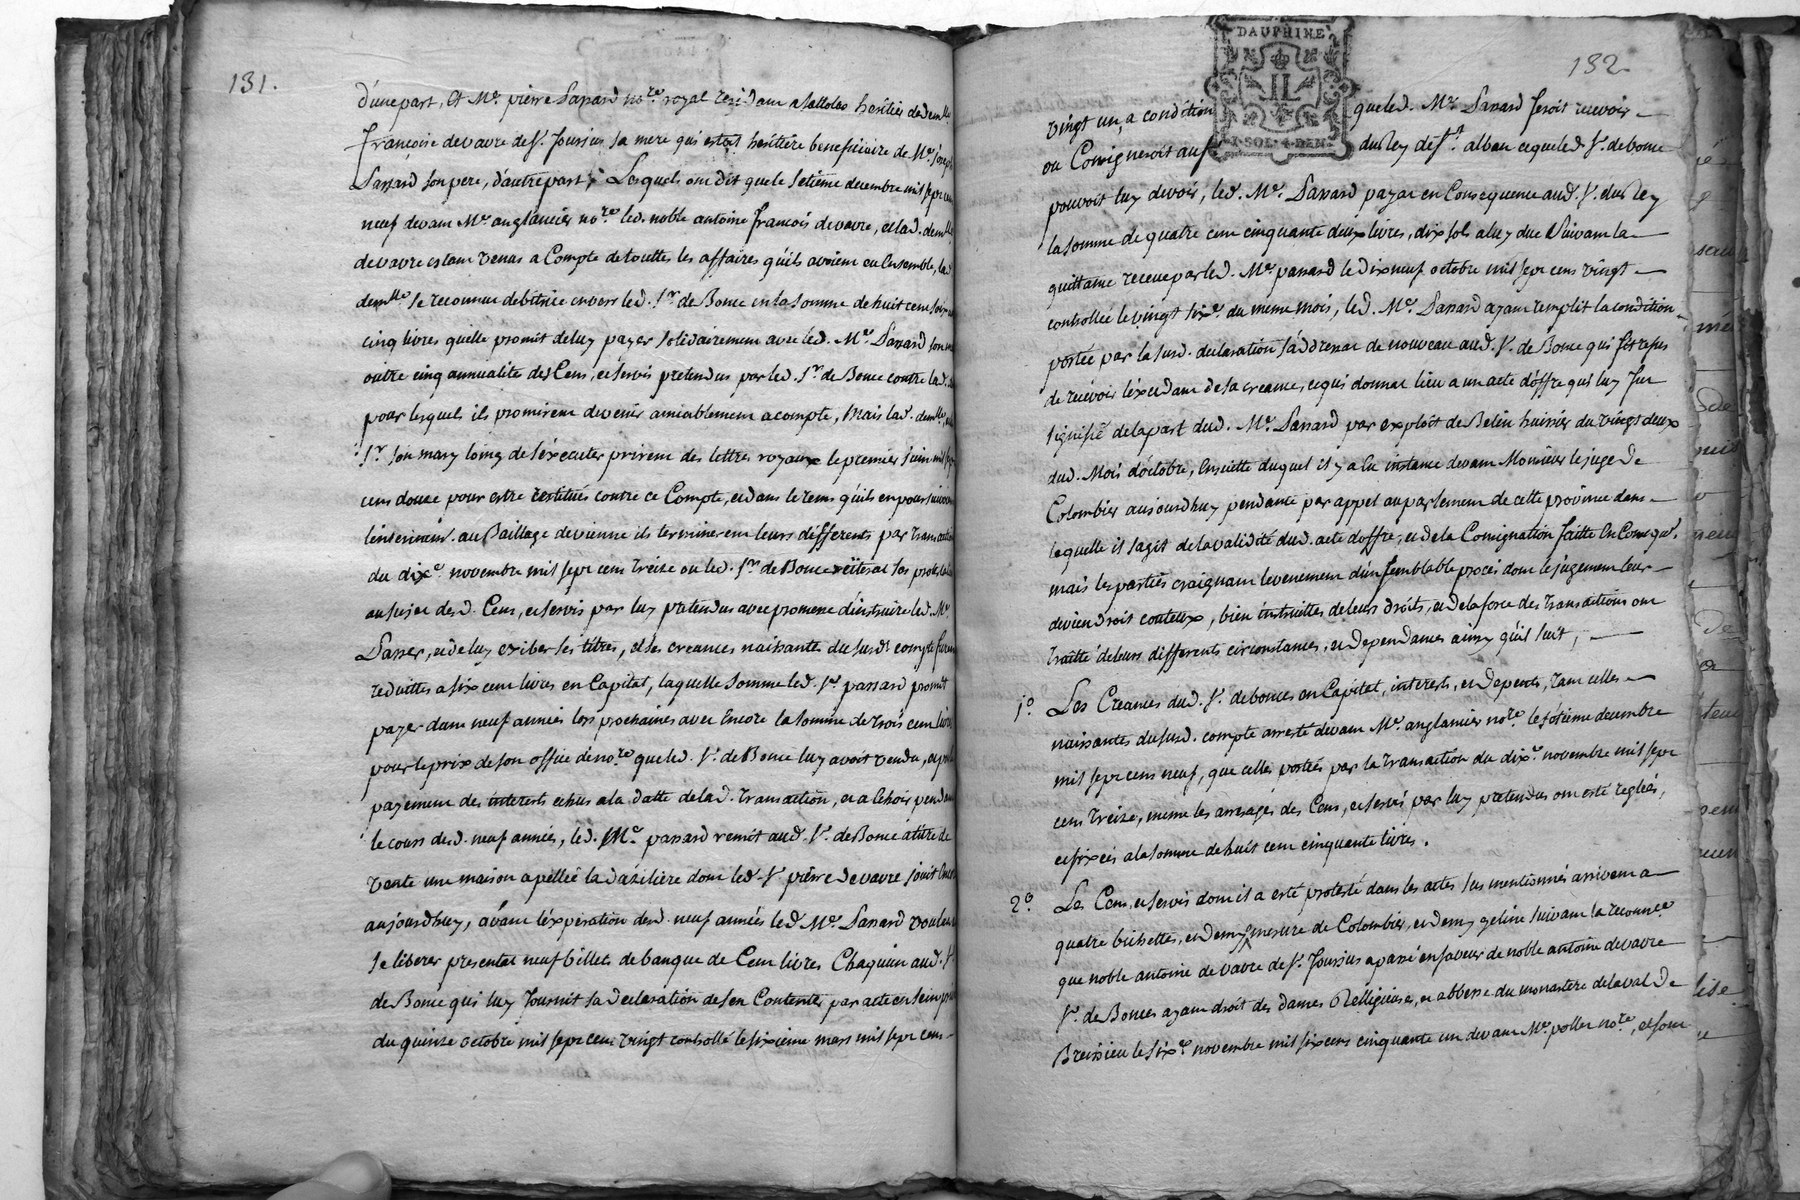 131.
d'une part, Et Me. pierre Passard nore. royal residam a Sattolas heritier de demlle
françoise devavre de St. Joursius sa mere qui estoit heritiere beneficiaire de Me. Joseph
Passard son pere, d'autre part; Lesquels ont dit que le setieme decembre mil sept cens
neuf devam Me. anglancier nore. led. noble antoine françois devavre, et lad. demlle
devavre estam venus a Compte de touttes les affaires qu'ils avoient eu Ensemble, lad.
demlle se reconnut debitrice envers led. Sr. de Bonce en la somme de huit cent soixante
cinq livres quelle promit de luy payer solidairement avec led. Me. Passard son mary
outre cinq annualités des Cens, et servis pretendus par led. Sr. de Bonce contre lad.
pour lesquels ils promirent devenir amiablement a compte, Mais lad. demlle, et led.
Sr. son mary loing de l'éxécuter prirent des lettres royaux le premier Juin mil sept
cens douze pour estre restitués contre ce Compte, et dans le tems qu'ils en poursuivoient
l'enterinemt. au Baillage de vienne ils terminerent leurs différents par transaction
du dixe. novembre mil sept cens treize ou led. Sr. de Bonce réïtérat ses protestations
au sujet desd. Cens, et servis par luy pretendus avec promesse d'instruire led. Me.
Passer, et de luy exiber ses titres, et les creances naissantes du susdt. compte furent
reduittes a six cent livres en Capital, laquelle somme led. Sr. passard promit
payer dans neuf années lors prochaines avec Encore la somme de trois cent livres
pour le prix de son office de nore. que led. Sr. de Bonce luy avoit vendu, et pour
payement des interests echus a la datte de lad. transaction, et a Echoir pendant
le cours desd. neuf années, led. Me. passard remit aud. Sr. de Bonce a titre de
vente une maison apellée la Dazilière dont led. Sr. pierre devavre jouit Encore
aujourdhuy, avant l'éxpiration desd. neuf années led. Me. Passard voulant
se liberer presentat neuf billets de banque de Cent livres Chaquun aud. Sr.
de Bonce qui luy fournit sa declaration de s'en Contenter par acte en seing privé
du quinze octobre mil sept cent vingt controllé le sixieme mars mil sept cens
DAUPHINÉ
I·SOL·4·DEN·
132
vingt un, a condition que led. Me. Passard feroit recevoir
ou Consigneroit au Sr. du Rey de St. alban ce que led. Sr. de bonce
pouvoit luy devoir, led. Me. Passard payat en Consequence aud. Sr. du Rey
la somme de quatre cent cinquante deux livres, dix sols a luy due Suivant la
quittance receue par led. Me. passard le dix neuf octobre mil sept cens vingt
controllée le vingt sixe. du même mois, led. Me. Passard ayant remplit la condition
portée par la susd. declaration s'addressat de nouveau aud. Sr. de Bonce qui fit refus
de recevoir l'éxcedant de sa creance, ce qui donnat lieu a un acte d'offre qui luy fut
signifié de la part dud. Me. Passard par exploit de Belin huissier du vingt deux
dud. Mois d'octobre, Ensuitte duquel il y a Eu instance devant Monsieur le juge de
Colombier aujourdhuy pendante par appel au parlement de cette province dans
laquelle il s'agit de la validité dud. acte d'offre, et de la Consignation faitte En Conseqce.
mais les parties craignant l'evenement d'un semblable procés dont le jugement leur
deviendroit couteux, bien instruittes de leurs droits, et de la force des transactions ont
traitté de leurs differents circonstances, et dependances ainsy qu'il suit,
1o. Les Creances dud. Sr. de bonces en Capital, interests, et depents, tant celles
naissantes du susd. compte arresté devant Me. anglancier nore. le sétieme decembre
mil sept cens neuf, que celles portées par la transaction du dixe. novembre mil sept
cens treize, meme les arrerages des Cens, et servis par luy pretendus ont esté reglées,
et fixées a la somme de huit cent cinquante livres.
2o. Les Cens, et servis dont il a esté protesté dans les actes sus mentionnés arrivent a
quatre bichettes, et demy mesure de Colombier, et demy geline suivant la reconnce.
que noble antoine de vavre de St. Joursius a passé en faveur de noble antoine devavre
Sr. de Bonces ayant droit des dames Relligieuse, et abbesse du monastere de laval de
Bressieu le sixe. novembre mil six cens cinquante un devant Me. poller nore., et sont